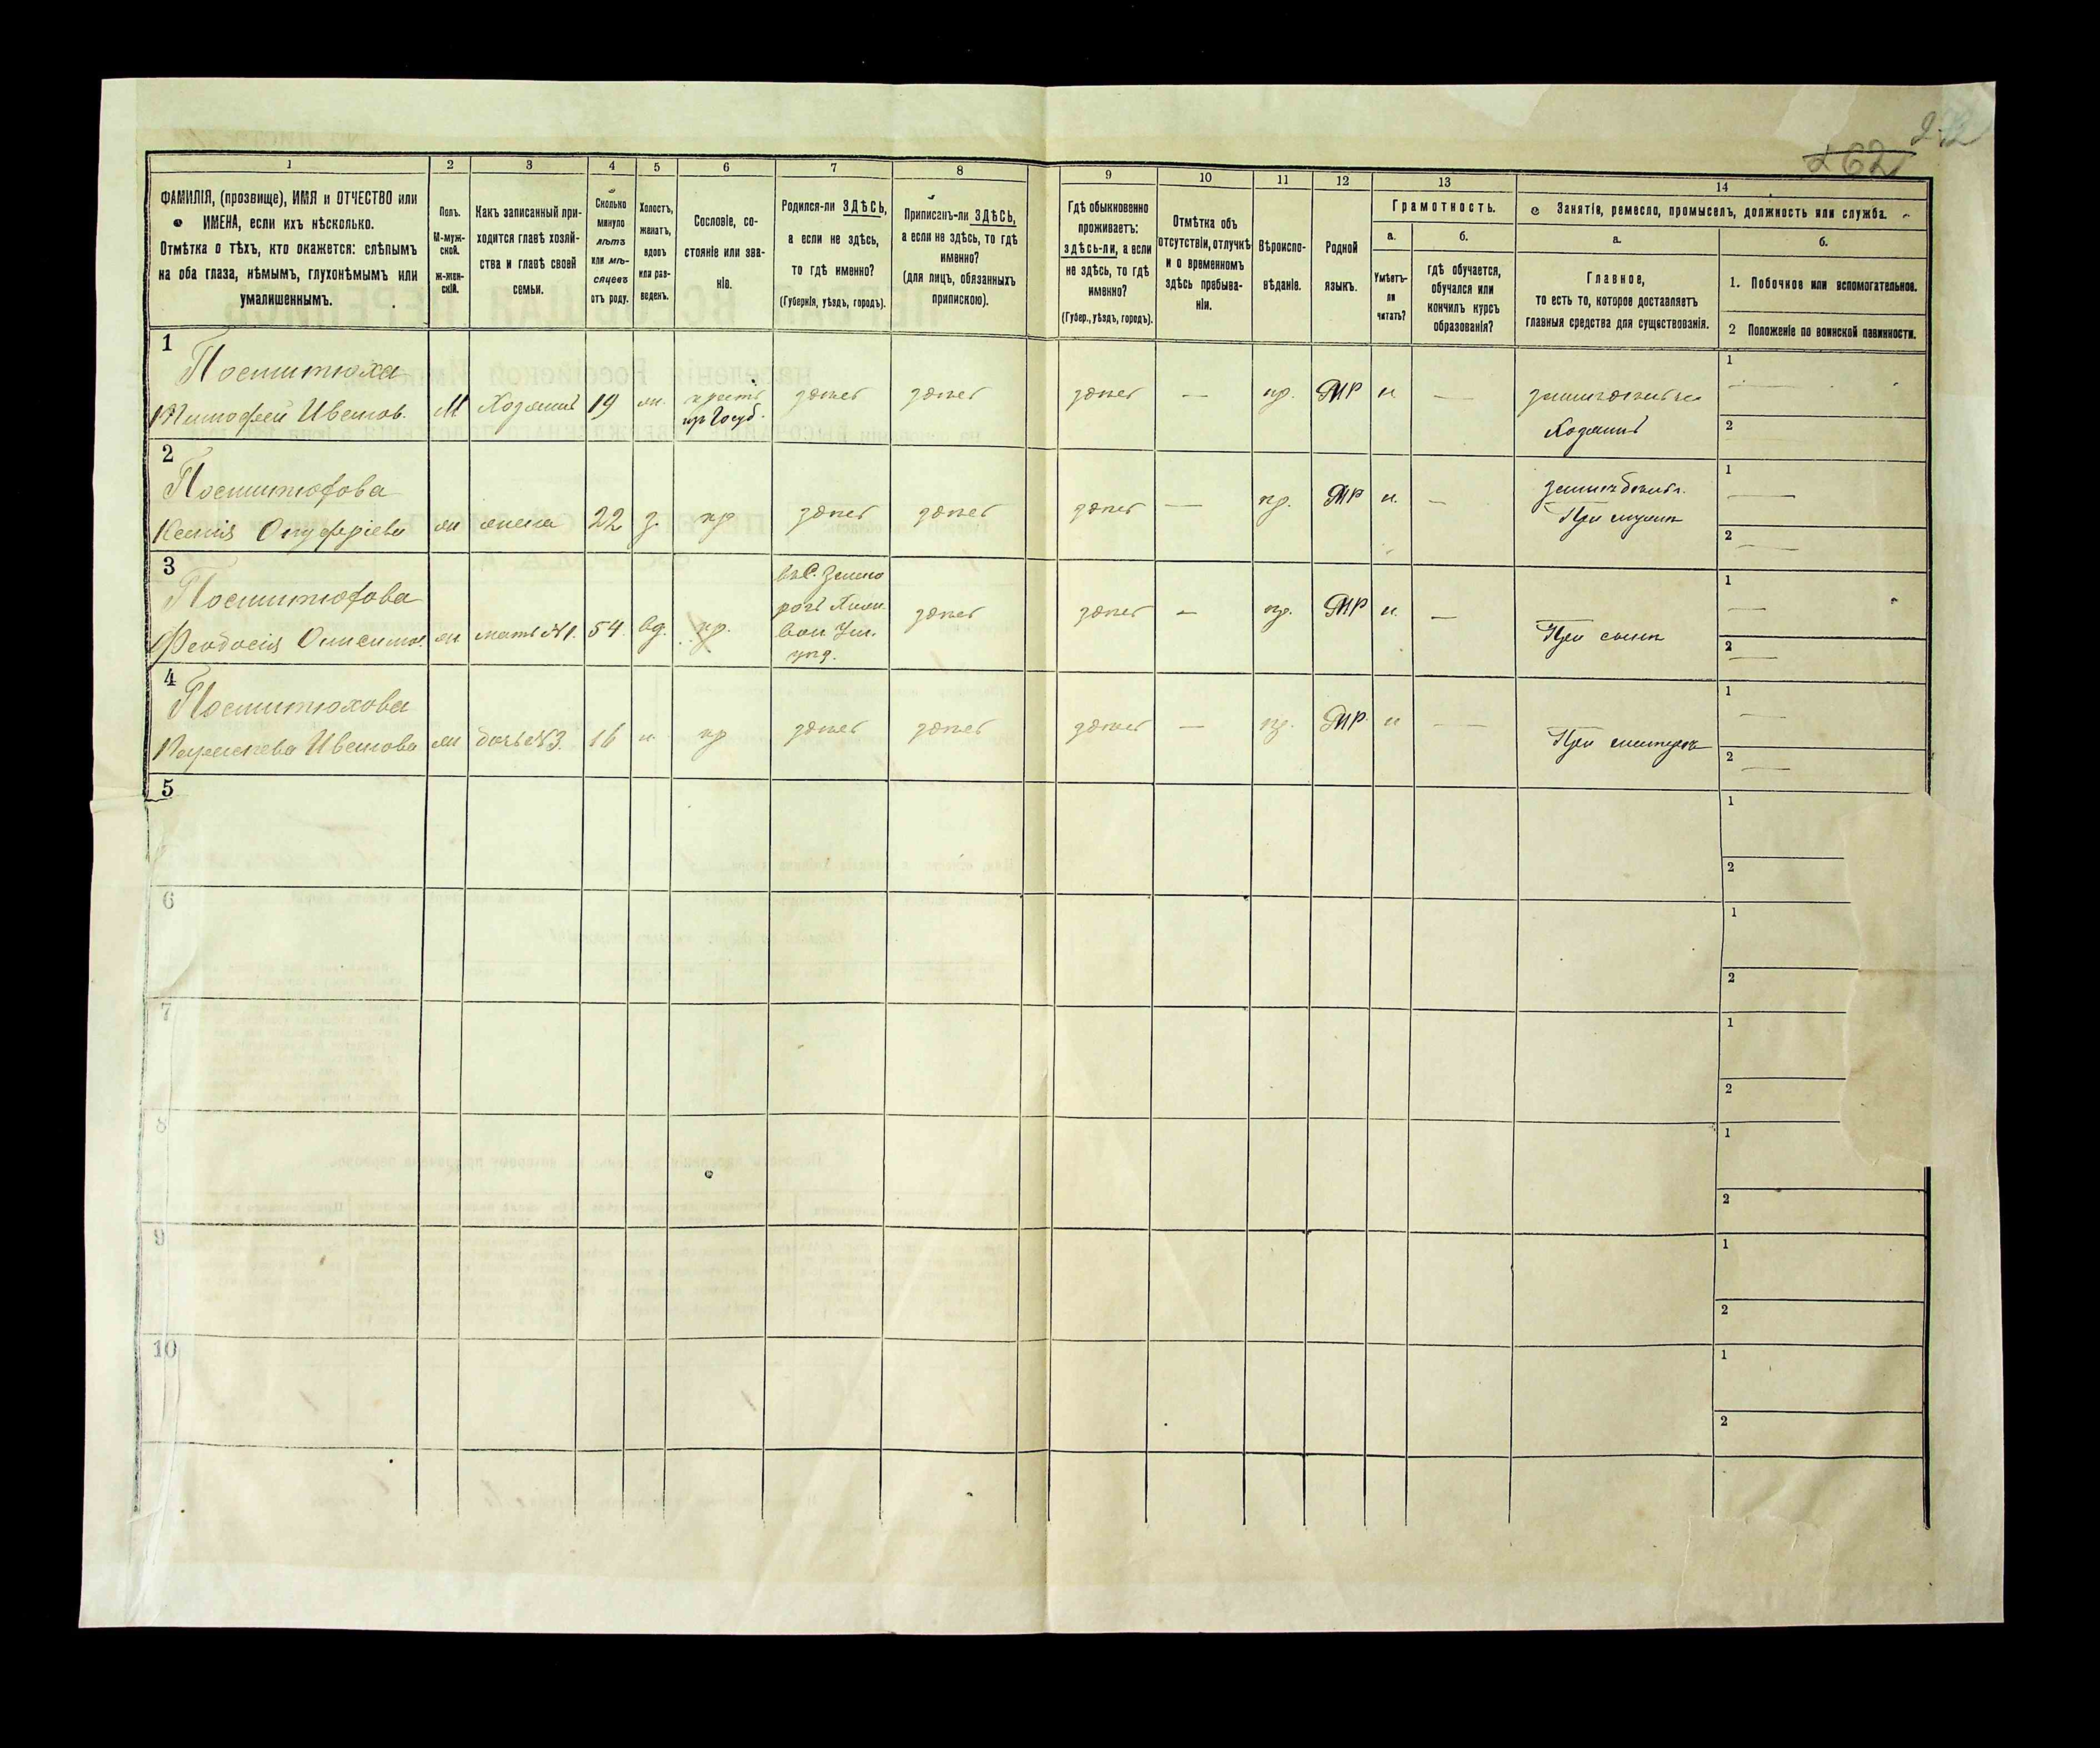 262
1
2
3
4
5
6
7
8
9
10
11
12
13
14
ФАМИЛІЯ, (прозвище), ИМЯ и ОТЧЕСТВО или
ИМЕНА, если ихъ нѣсколько.
Отмѣтка о тѣхъ, кто окажется: слѣпымъ
на оба глаза, нѣмымъ, глухонѣмымъ или
умалишеннымъ.
Полъ.
М-муж-
ской.
ж-жен-
скій.
Какъ записанный при-
ходится главѣ хозяй-
ства и главѣ своей
семьи.
Сколько
минуло
лѣтъ
или мѣ-
сяцевъ
отъ роду.
Холостъ,
женатъ,
вдовъ
или раз-
веденъ.
Сословіе, со-
стояніе или зва-
ніе.
Родился-ли ЗДѢСЬ,
а если не здѣсь,
то гдѣ именно?
(Губернія, уѣздъ, городъ).
Приписанъ-ли ЗДѢСЬ,
а если не здѣсь, то гдѣ
именно?
(для лицъ, обязанныхъ
припискою).
Гдѣ обыкновенно
проживаетъ:
здѣсь-ли, а если
не здѣсь, то гдѣ
именно?
(Губер., уѣздъ, городъ).
Отмѣтка объ
отсутствіи, отлучкѣ
и о временномъ
здѣсь пребыва-
ніи.
Вѣроиспо-
вѣданіе.
Родной
языкъ.
Грамотность.
а.
Умѣетъ-
ли
читать?
б.
гдѣ обучается,
обучался или
кончилъ курсъ
образованія?
Занятіе, ремесло, промыселъ, должность или служба.
а.
Главное,
то есть то, которое доставляетъ
главныя средства для существованія.
б.
1. Побочное или вспомогательное.
2 Положеніе по воинской повинности.
1
Поститюха
Тимофей Иванов.
М Хозяинъ 19
крест.
из Госуд.
здѣсь здѣсь здѣсь — пр. МР н — земледѣлец
Хозяинъ
1
2
2
Постштюхова
Ксенія Онуфріева
жена 22 з. кр здѣсь здѣсь здѣсь — пр. МР н. —
При мужѣ
1
2
3
Постштюхова
Феодосія Онисимов.
мать №1. 54 вд. кр.
здѣсь здѣсь — пр. МР н. —
При сынѣ
1
2
4
Постштюхова
Иванова
дочь №3. 16 кр здѣсь здѣсь здѣсь — пр. МР. н —
При матери
1
2
5
1
2
6
1
2
7
1
2
8
1
2
9
1
2
10
1
2